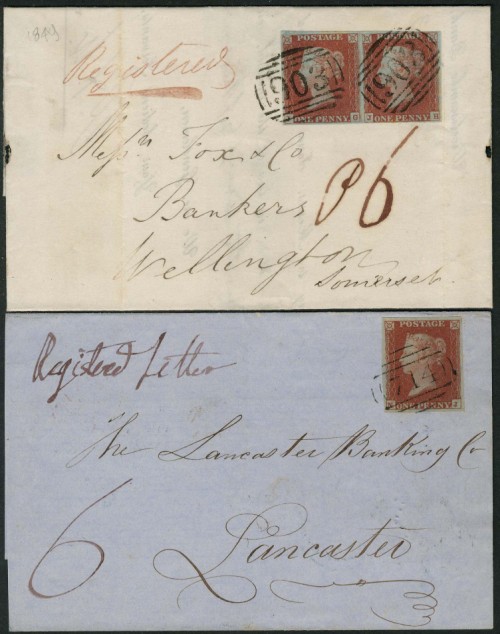 1849
Registered
POSTAGE POSTAGE
903 903
ONE PENNY ONE PENNY
Messrs Fox & Co
Bankers P 6
Wellington
Somerset
Registered Letter
POSTAGE
ONE PENNY
The Lancaster Banking Co
6
Lancaster